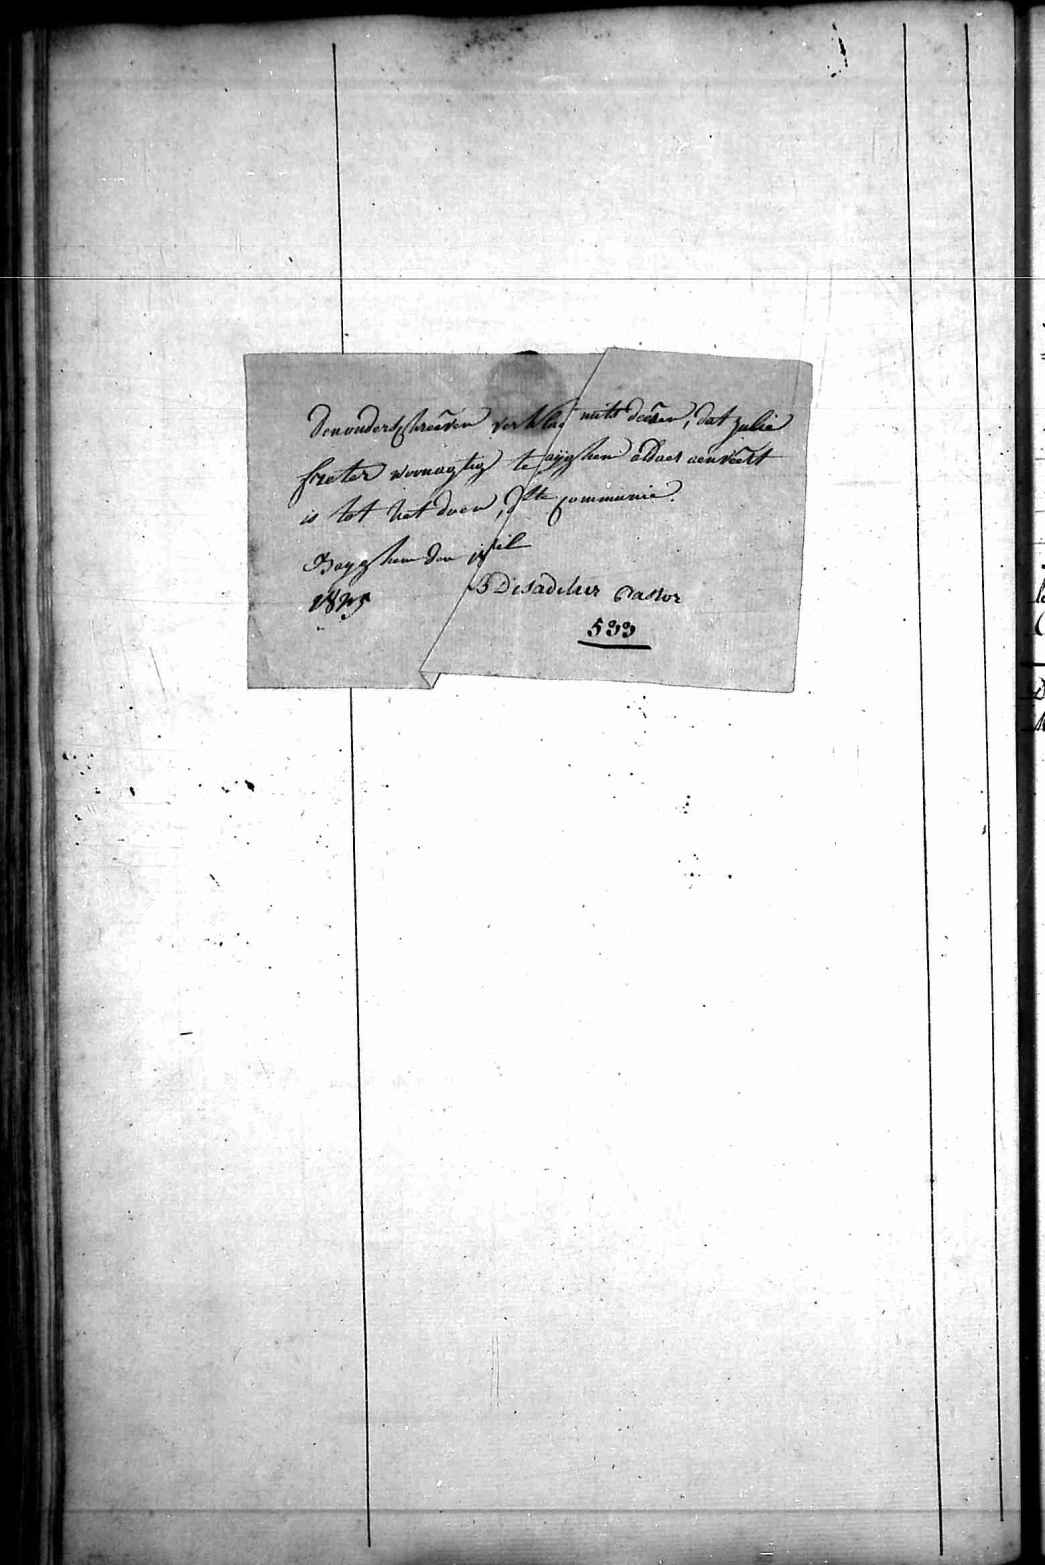 den onderschreéven verkla mits deésen, dat julie
freter woonagtig te ayghem aldaer aenveért
is tot het doen, Ste communie.
Bayghem den il
1825 B Desadeleer Pastor
533